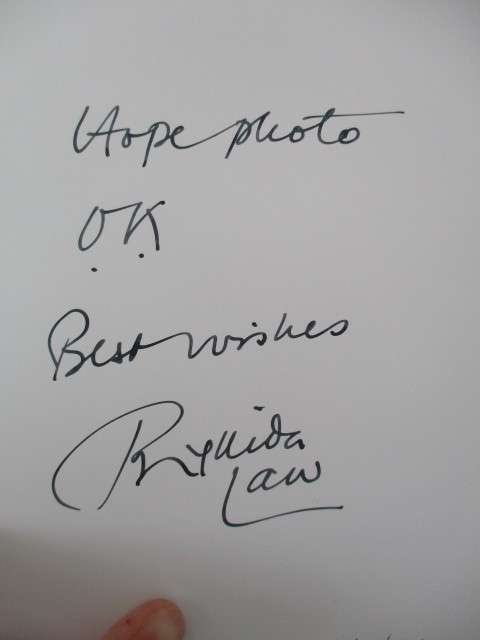 Hope photo
O.K.
Best wishes
Phyllida
Law